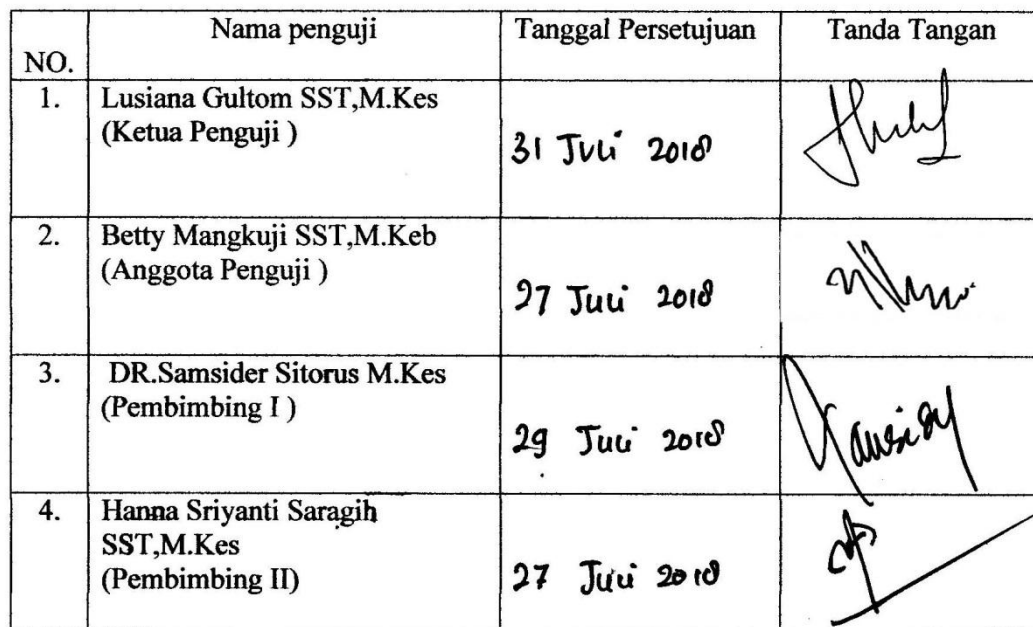 NO. Nama penguji Tanggal Persetujuan Tanda Tangan
1. Lusiana Gultom SST,M.Kes
(Ketua Penguji )
31 Juli 2018
2. Betty Mangkuji SST,M.Keb
(Anggota Penguji )
27 Juli 2018
3. DR.Samsider Sitorus M.Kes
(Pembimbing I )
29 Juli 2018
4. Hanna Sriyanti Saragih
SST,M.Kes
(Pembimbing II)
27 Juli 2018